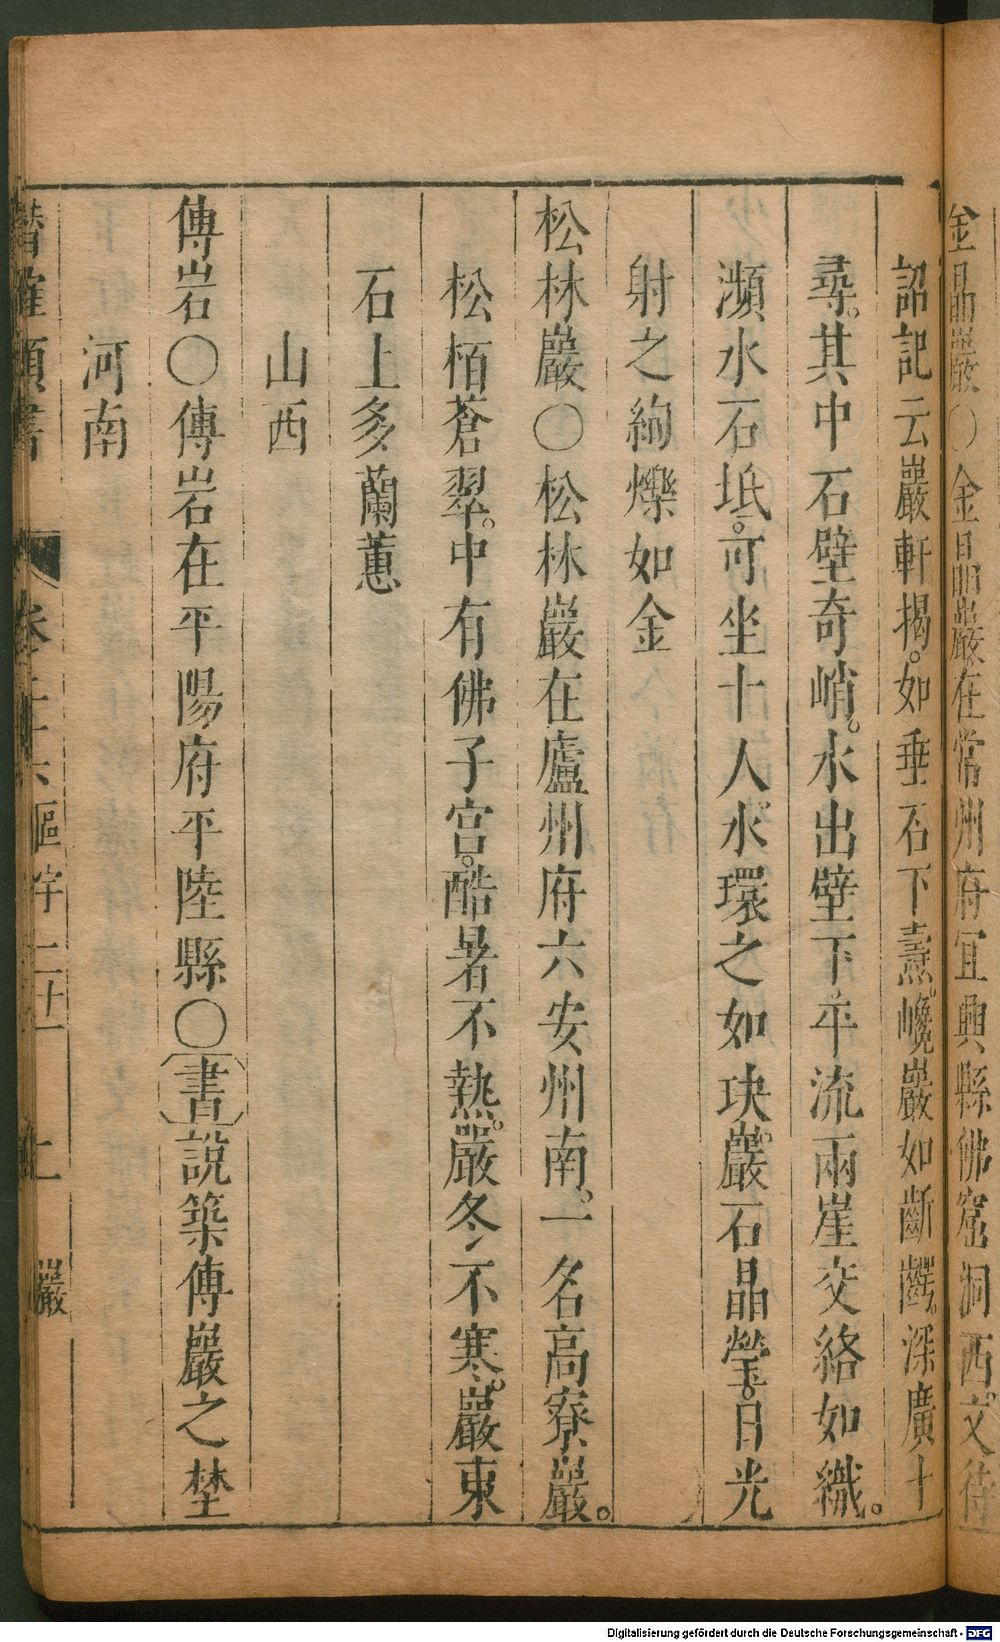 金晶巖〇金晶巖在常州府宜興縣佛窟洞西文待
詔記云巖軒揭如垂石下燾巉巖如斷齶深廣十
尋其中石壁奇峭水出壁下平流兩崖交絡如織
瀕水石坻可坐十人水環之如玦巖石晶瑩日光
射之絢爍如金
松林巖〇松林巖在廬州府六安州南一名高寮巖
松栢蒼翠中有佛子宮酷暑不熱嚴冬不寒巖東
石上多蘭蕙
山西
傅岩〇傅岩在平陽府平陸縣〇書說築傅巖之埜
河南
潛確類書 卷二十六 區宇二十一 七 巖
Digitalisierung gefördert durch die Deutsche Forschungsgemeinschaft - DFG